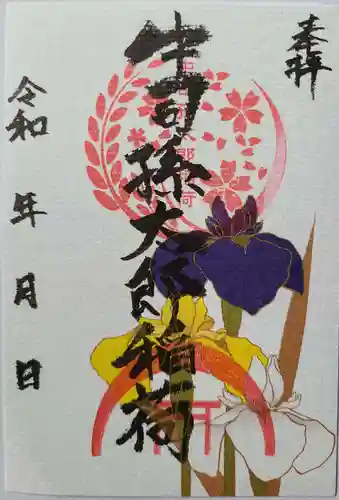 奉拝
牛司孫太郎稲荷
令和 年 月 日